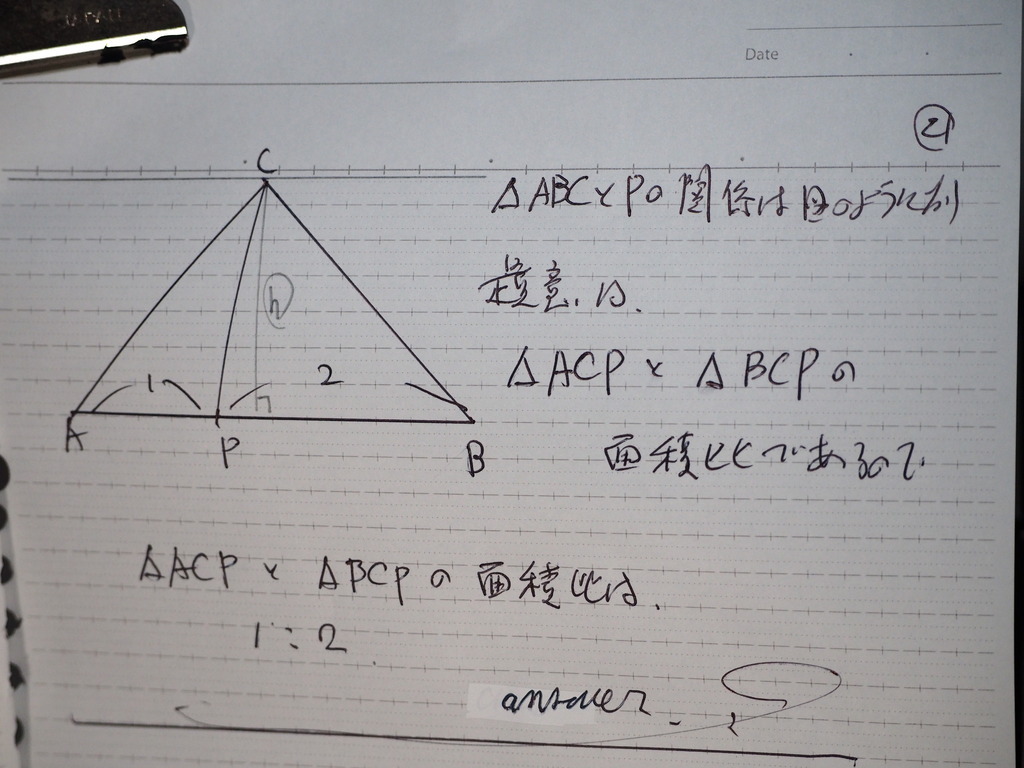 Date
21
C
△ABCとPの関係は図のようになり
h
題意は、
1
2
△ACPと△BCPの
A
P
B
面積比であるので
△ACPと△BCPの面積比は、
1:2
answer